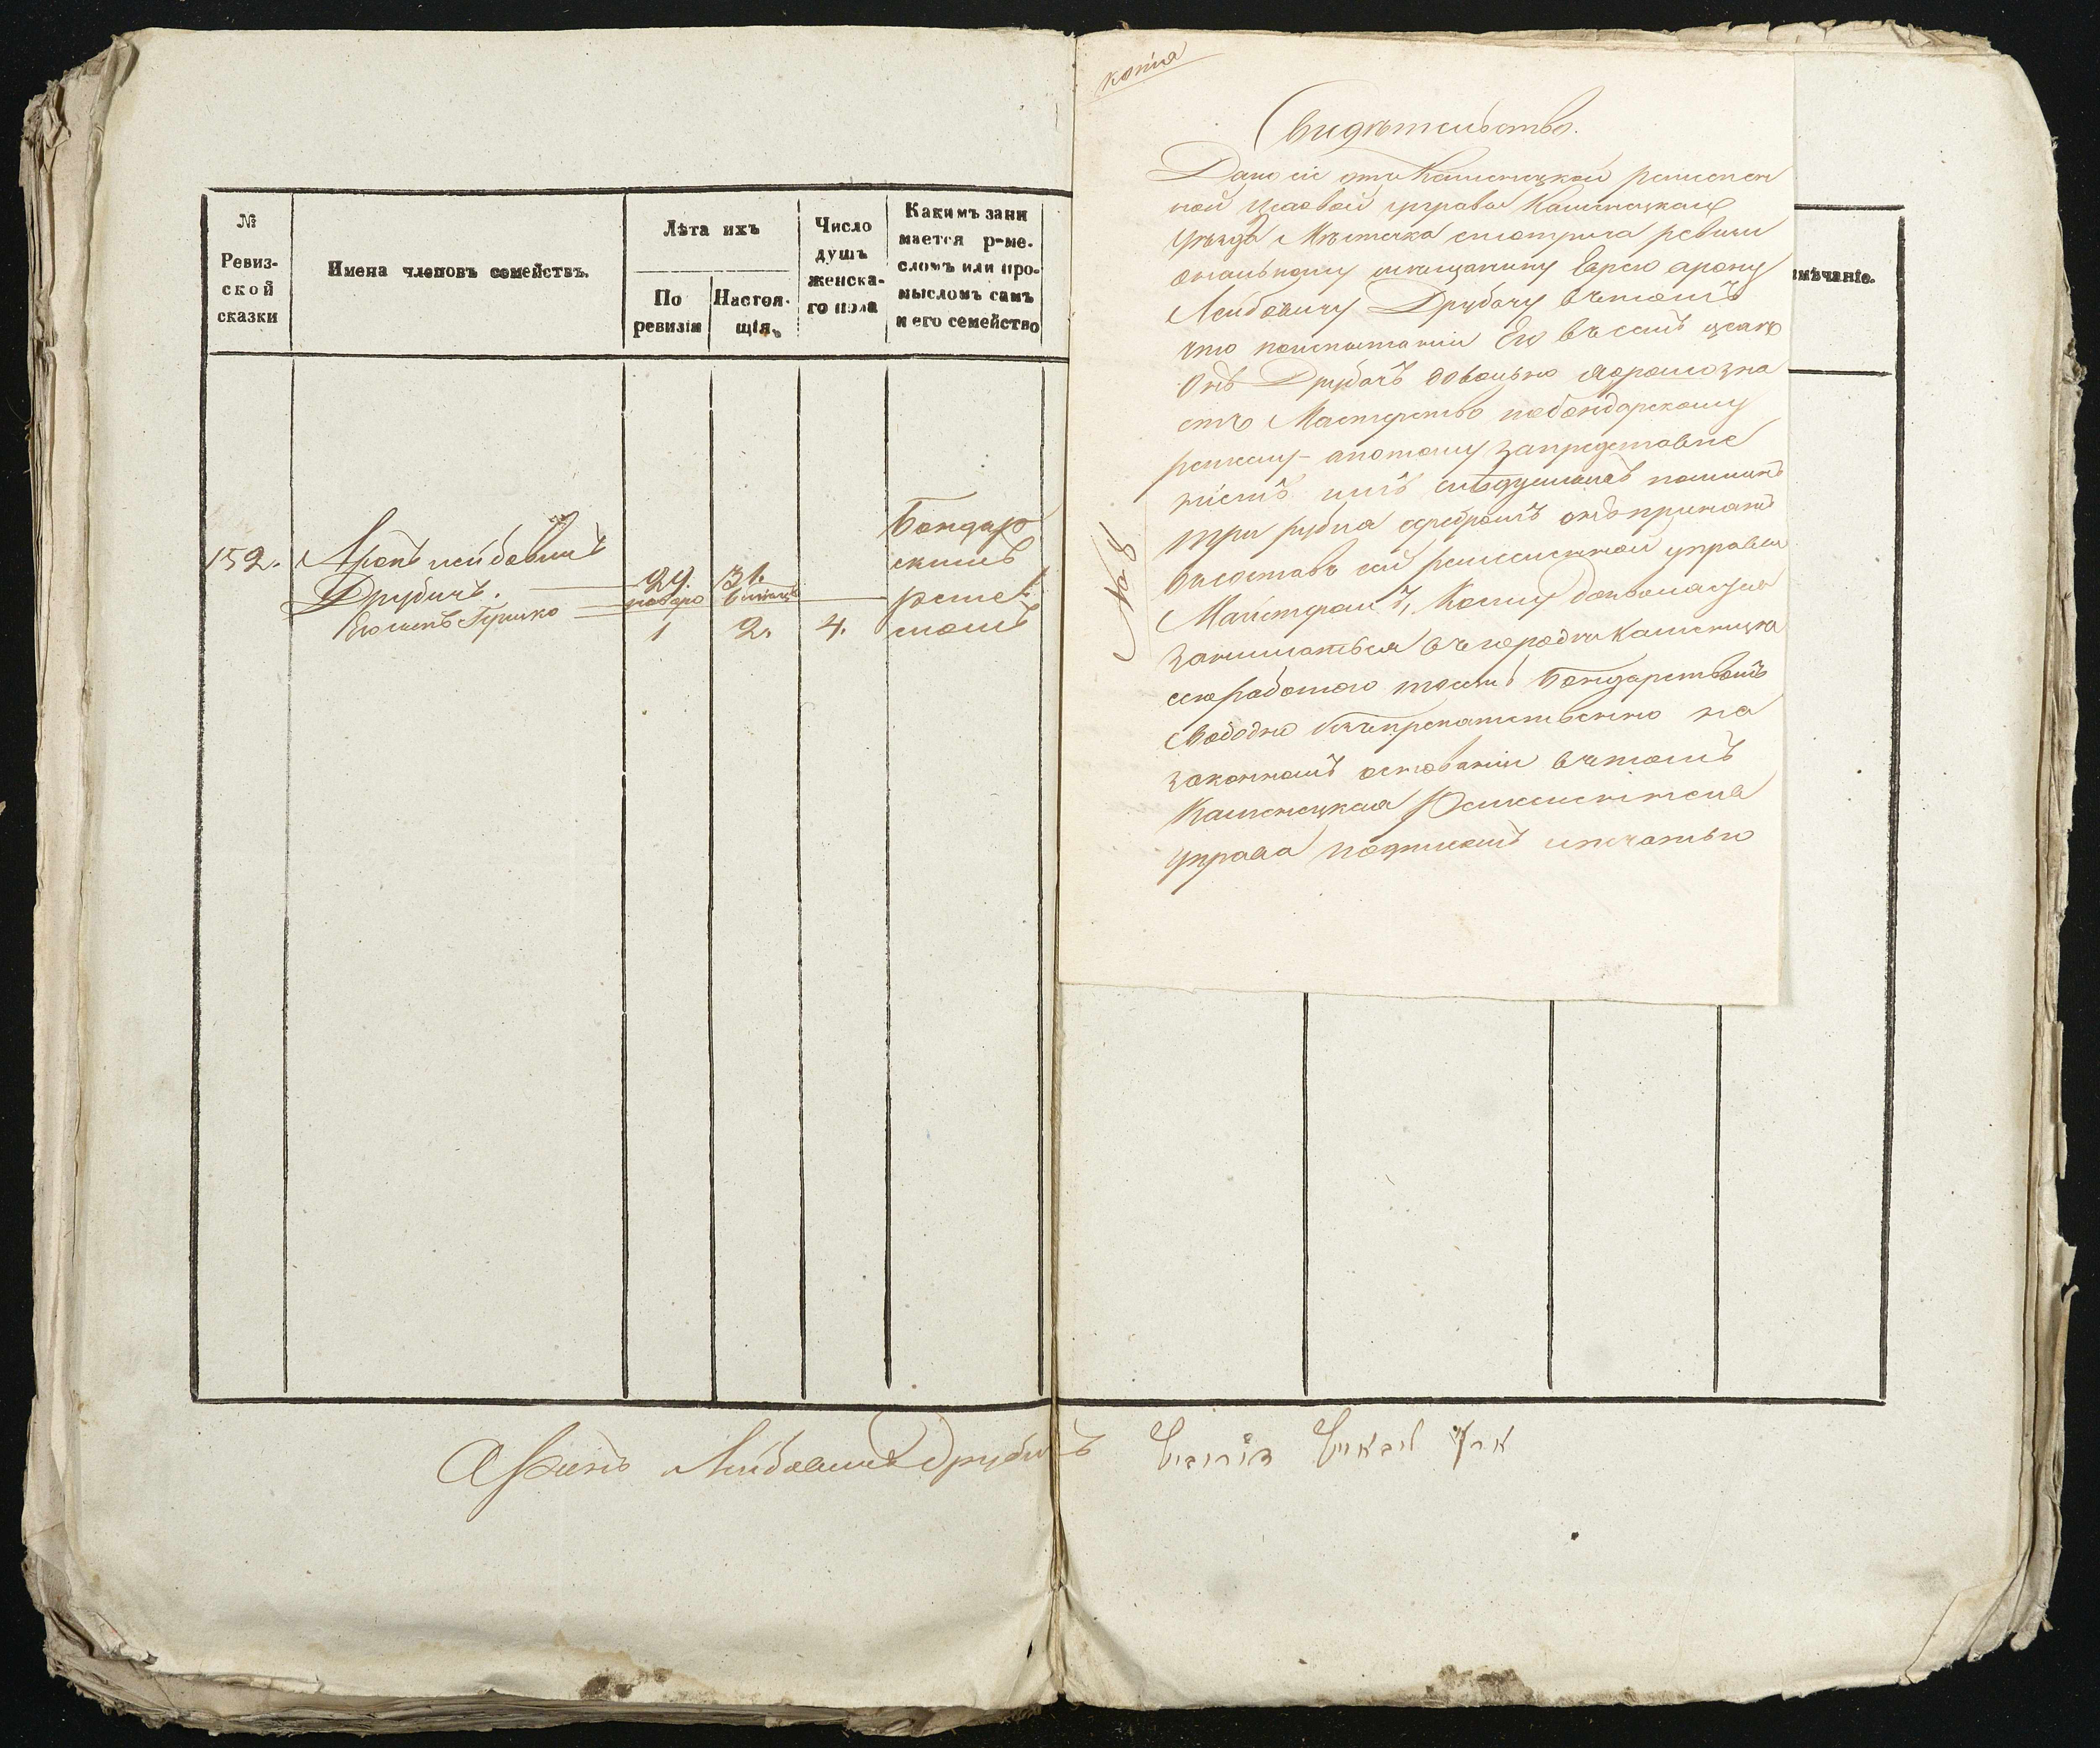 №
Ревиз-
ской
сказки
Имена членовъ семействъ.
Лѣта ихъ
По
ревизіи
Настоя-
щія
Число
душъ
женска-
го пола
Какимъ зани
мается р-ме-
сломъ или про-
мысломъ самъ
и его семейство
152.
Аронъ лейбовичъ
Друбичъ.
Его сынъ
29.
31.
1
2.
4.
Бондар
скимъ
ремес
ломъ
Аронъ Лейбовичъ Друбичъ
копія
Свидѣтельство.
Дано сіе отъ Каменецкой ремеслен
ной цеховой управы Каменецкаго
уѣзда Мѣстечка смотрича ревизи
ональному мещанину Еврею арону
Лейбовичу Друбачу въ томъ
что по испытанію Его въ семъ цехѣ
онъ Друбачъ довольно хорошо зна
етъ Мастерство по бондарскому
ремеслу а потому за представле
ніемъ имъ слѣдуемыхъ пошлинъ
три рубля серебромъ онъ принятъ
въ составъ сей ремесленной управы
Мајстромъ, Коему дозволяется
заниматься въ городѣ Каменцѣ
работою бондарствомъ
свободно безпрепятственно на
законномъ основаніи въ томъ
Каменецкая Ремесленная
управа подписомъ и печатью
№ 8
мѣчаніе.